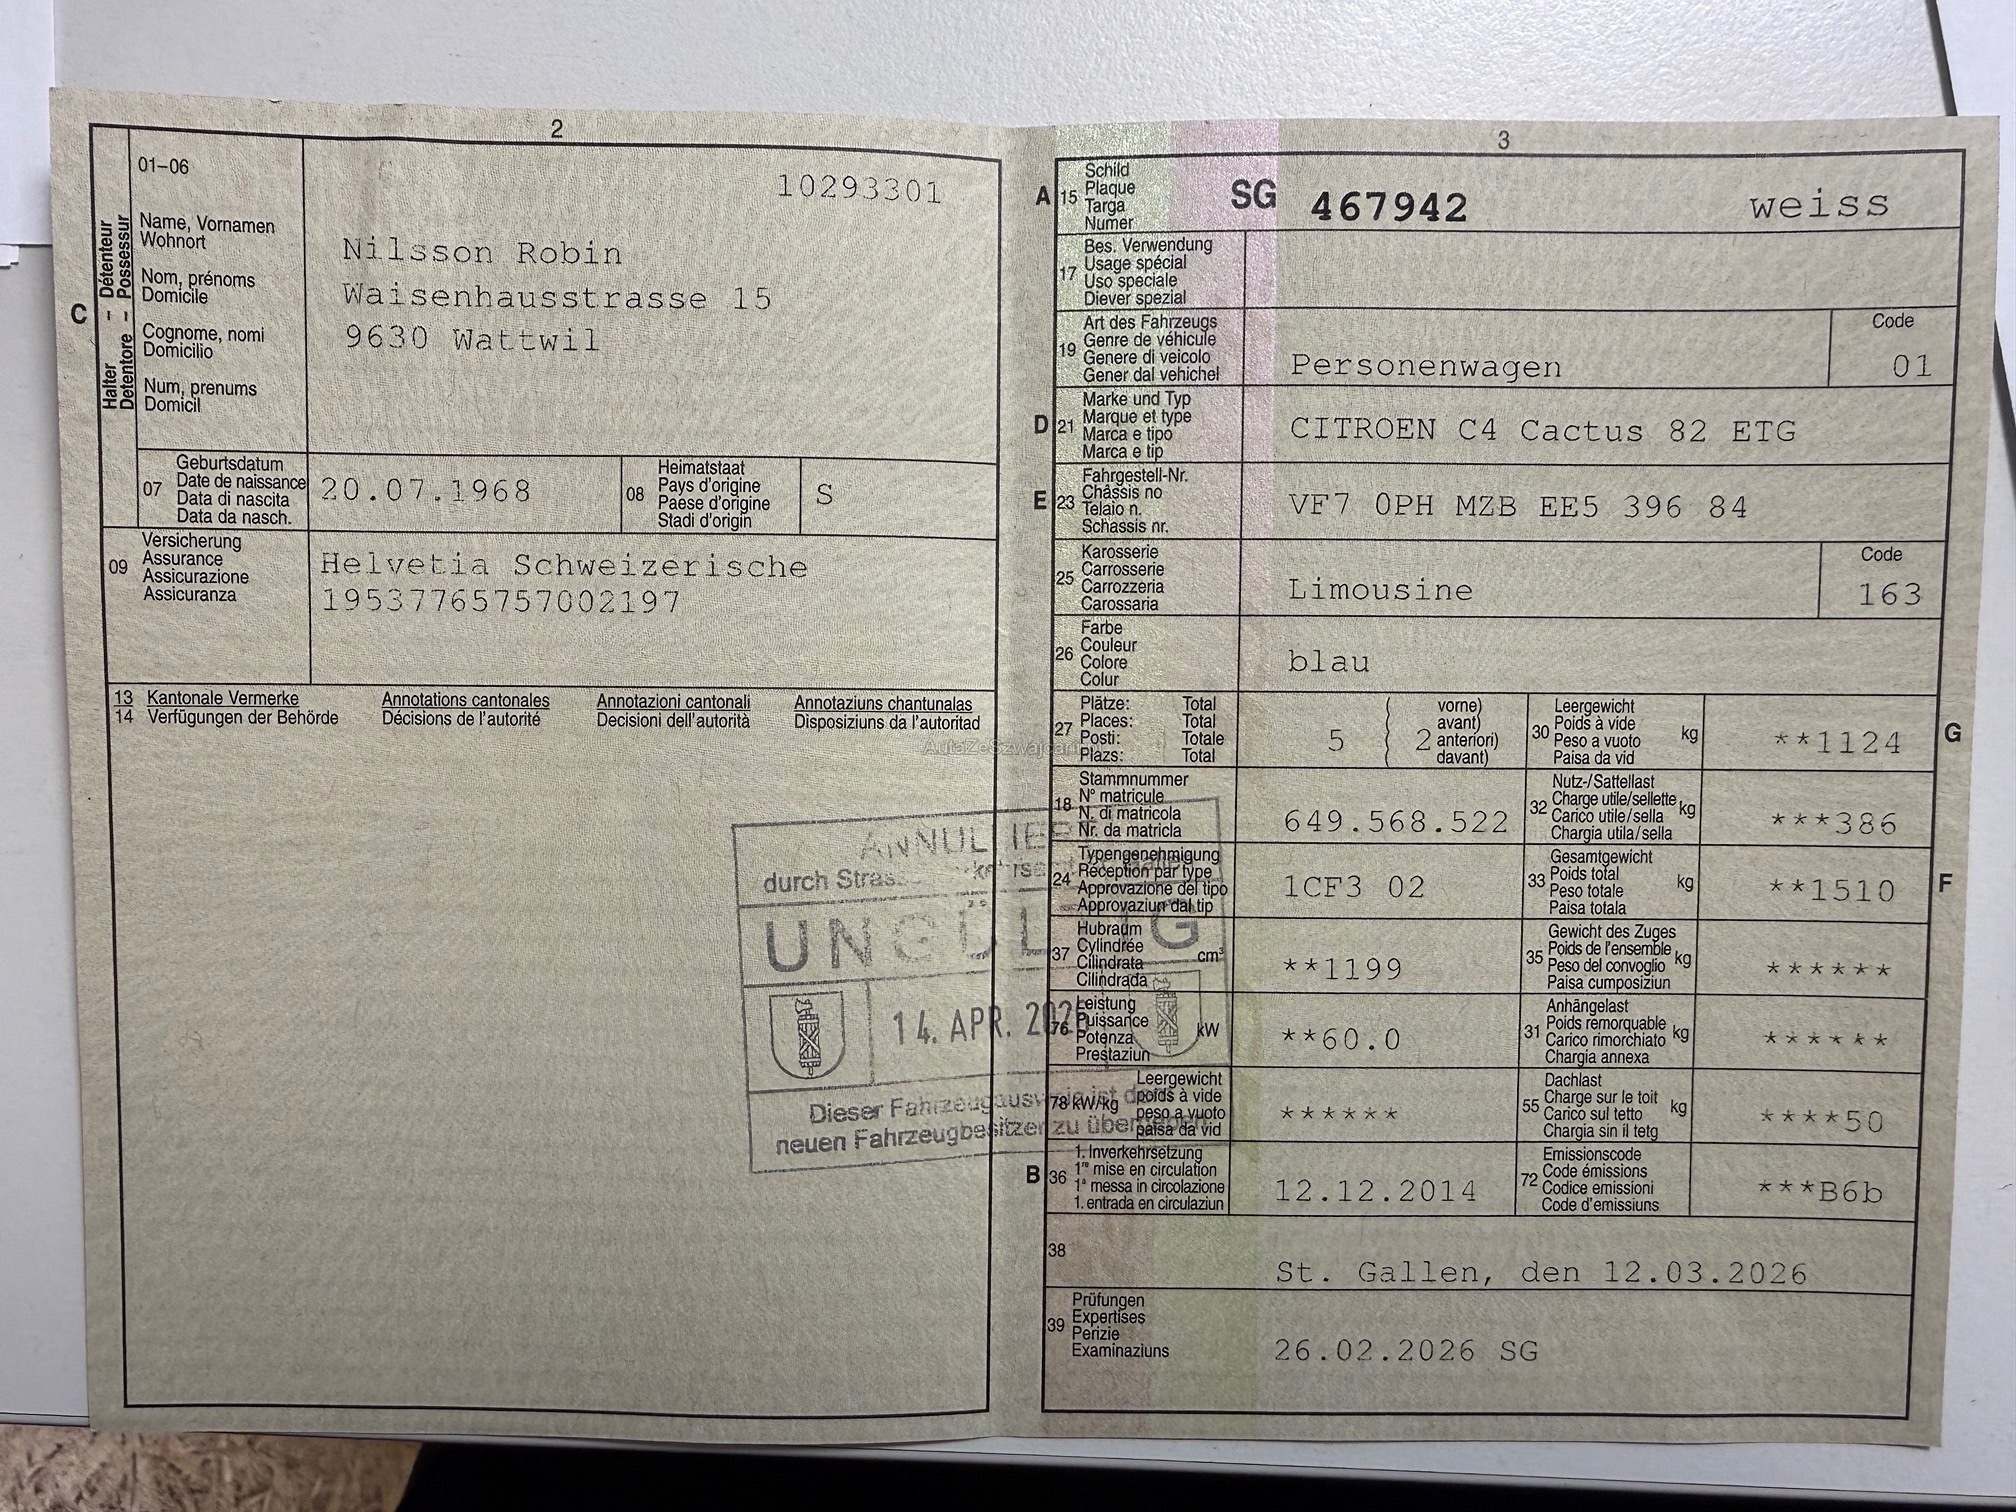 2
01–06
10293301
C
Halter – Détenteur
Detentore – Possessur
Name, Vornamen
Wohnort
Nom, prénoms
Domicile
Cognome, nomi
Domicilio
Num, prenums
Domicil
Nilsson Robin
Waisenhausstrasse 15
9630 Wattwil
07
Geburtsdatum
Date de naissance
Data di nascita
Data da nasch.
20.07.1968
08
Heimatstaat
Pays d'origine
Paese d'origine
Stadi d'origin
S
09
Versicherung
Assurance
Assicurazione
Assicuranza
Helvetia Schweizerische
19537765757002197
13 Kantonale Vermerke Annotations cantonales Annotazioni cantonali Annotaziuns chantunalas
14 Verfügungen der Behörde Décisions de l'autorité Decisioni dell'autorità Disposiziuns da l'autoritad
AutaZeSzwajcarii
ANNULLIERT
durch
UNGÜLTIG
14. APR. 2026
Dieser Fahrzeugausweis ist dem
neuen Fahrzeugbesitzer zu übergeben
3
A
15
Schild
Plaque
Targa
Numer
SG 467942 weiss
17
Bes. Verwendung
Usage spécial
Uso speciale
Diever spezial
19
Art des Fahrzeugs
Genre de véhicule
Genere di veicolo
Gener dal vehichel
Personenwagen
Code
01
D
21
Marke und Typ
Marque et type
Marca e tipo
Marca e tip
CITROEN C4 Cactus 82 ETG
E
23
Fahrgestell-Nr.
Châssis no
Telaio n.
Schassis nr.
VF7 0PH MZB EE5 396 84
25
Karosserie
Carrosserie
Carrozzeria
Carossaria
Limousine
Code
163
26
Farbe
Couleur
Colore
Colur
blau
27
Plätze: Total
Places: Total
Posti: Totale
Plazs: Total
5
2
vorne)
avant)
anteriori)
davant)
30
Leergewicht
Poids à vide
Peso a vuoto
Paisa da vid
kg
**1124
G
18
Stammnummer
N° matricule
N. di matricola
Nr. da matricla
649.568.522
32
Nutz-/Sattellast
Charge utile/sellette
Carico utile/sella
Chargia utila/sella
kg
***386
24
Typengenehmigung
Réception par type
Approvazione del tipo
Approvaziun dal tip
1CF3 02
33
Gesamtgewicht
Poids total
Peso totale
Paisa totala
kg
**1510
F
37
Hubraum
Cylindrée
Cilindrata
Cilindrada
cm³
**1199
35
Gewicht des Zuges
Poids de l'ensemble
Peso del convoglio
Paisa cumposiziun
kg
******
76
Leistung
Puissance
Potenza
Prestaziun
kW
**60.0
31
Anhängelast
Poids remorquable
Carico rimorchiato
Chargia annexa
kg
******
78 kW/kg
Leergewicht
poids à vide
peso a vuoto
paisa da vid
******
55
Dachlast
Charge sur le toit
Carico sul tetto
Chargia sin il tetg
kg
****50
B
36
1. Inverkehrsetzung
1re mise en circulation
1a messa in circolazione
1. entrada en circulaziun
12.12.2014
72
Emissionscode
Code émissions
Codice emissioni
Code d'emissiuns
***B6b
38
St. Gallen, den 12.03.2026
39
Prüfungen
Expertises
Perizie
Examinaziuns
26.02.2026 SG